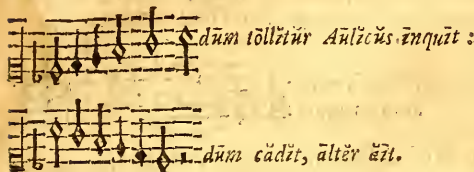 dūm tōllĭtŭr Aūlĭcŭs īnquĭt :
dūm cădĭt, āltĕr ăĭt.